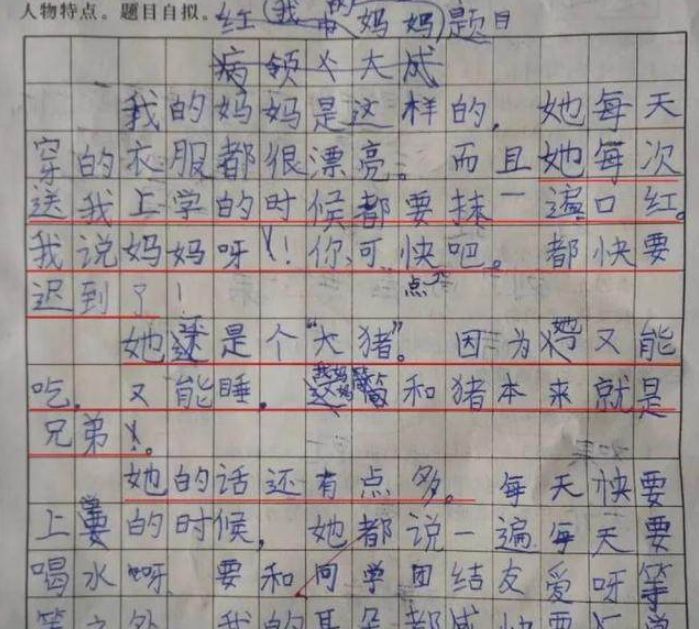 人物特点。题目自拟。
红(我的妈妈)题目
我的妈妈是这样的，她每天
穿的衣服都很漂亮。而且她每次
送我上学的时候都要抹一遍口红。
我说妈妈呀！你可快点吧。都快要
迟到了！
她还是个“大猪”。因为她又能
吃，又能睡。我妈妈简简和猪本来就是
兄弟。
她的话还有点多。每天快要
上学的时候，她都说一遍每天要
喝水呀要和同学团结友爱呀等
等之外